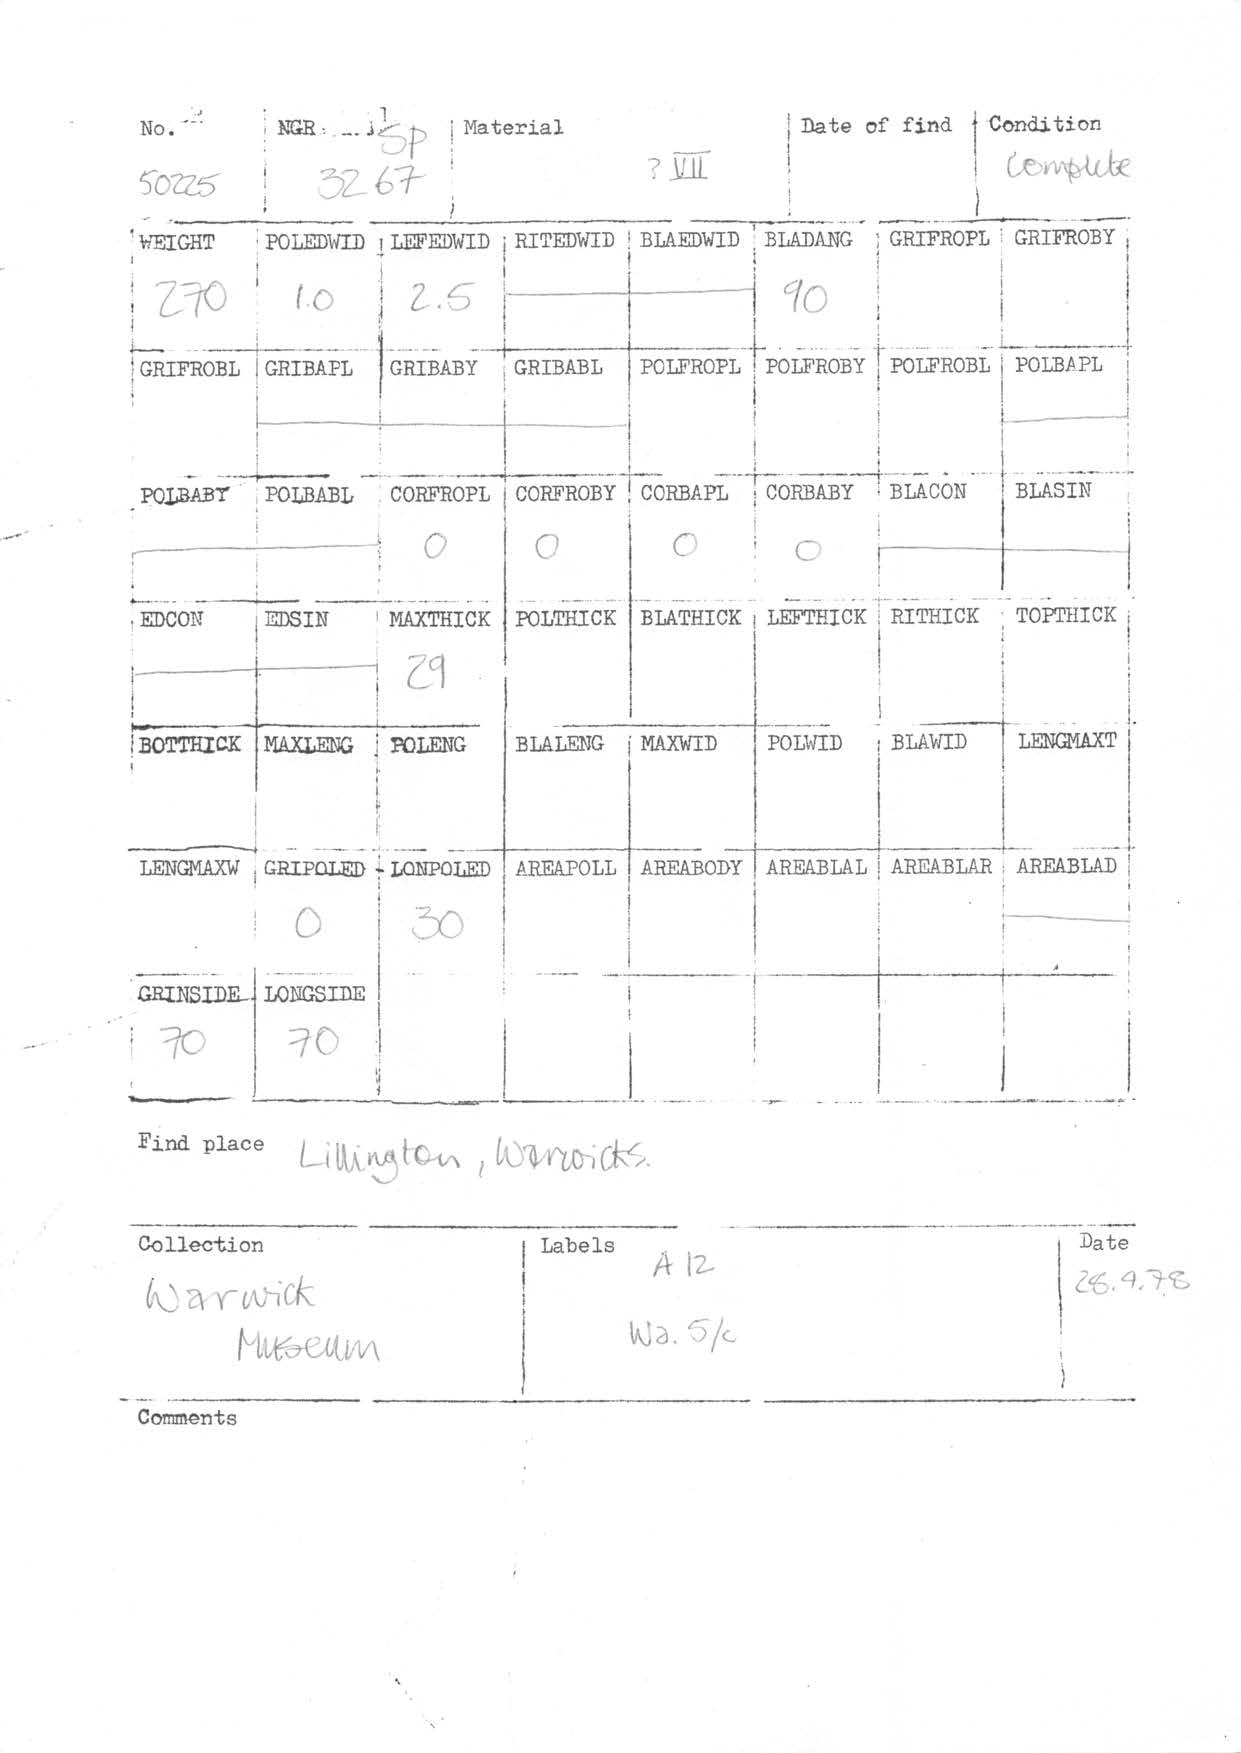 No. NGR Material Date of find Condition
50225 SP 3267 ? VII Complete
WEIGHT POLEDWID LEFEDWID RITEDWID BLAEDWID BLADANG GRIFROPL GRIFROBY
270 1.0 2.5 90
GRIFROBL GRIBAPL GRIBABY GRIBABL POLFROPL POLFROBY POLFROBL POLBAPL
POLBABY POLBABL CORFROPL CORFROBY CORBAPL CORBABY BLACON BLASIN
0 0 0 0
EDCON EDSIN MAXTHICK POLTHICK BLATHICK LEFTHICK RITHICK TOPTHICK
29
BOTTHICK MAXLENG POLENG BLALENG MAXWID POLWID BLAWID LENGMAXT
LENGMAXW GRIPOLED LONPOLED AREAPOLL AREABODY AREABLAL AREABLAR AREABLAD
0 30
GRINSIDE LONGSIDE
70 70
Find place Lillington, Warwicks.
Collection Labels Date
A 12
Warwick 28.9.78
Museum Wa. 5/c
Comments